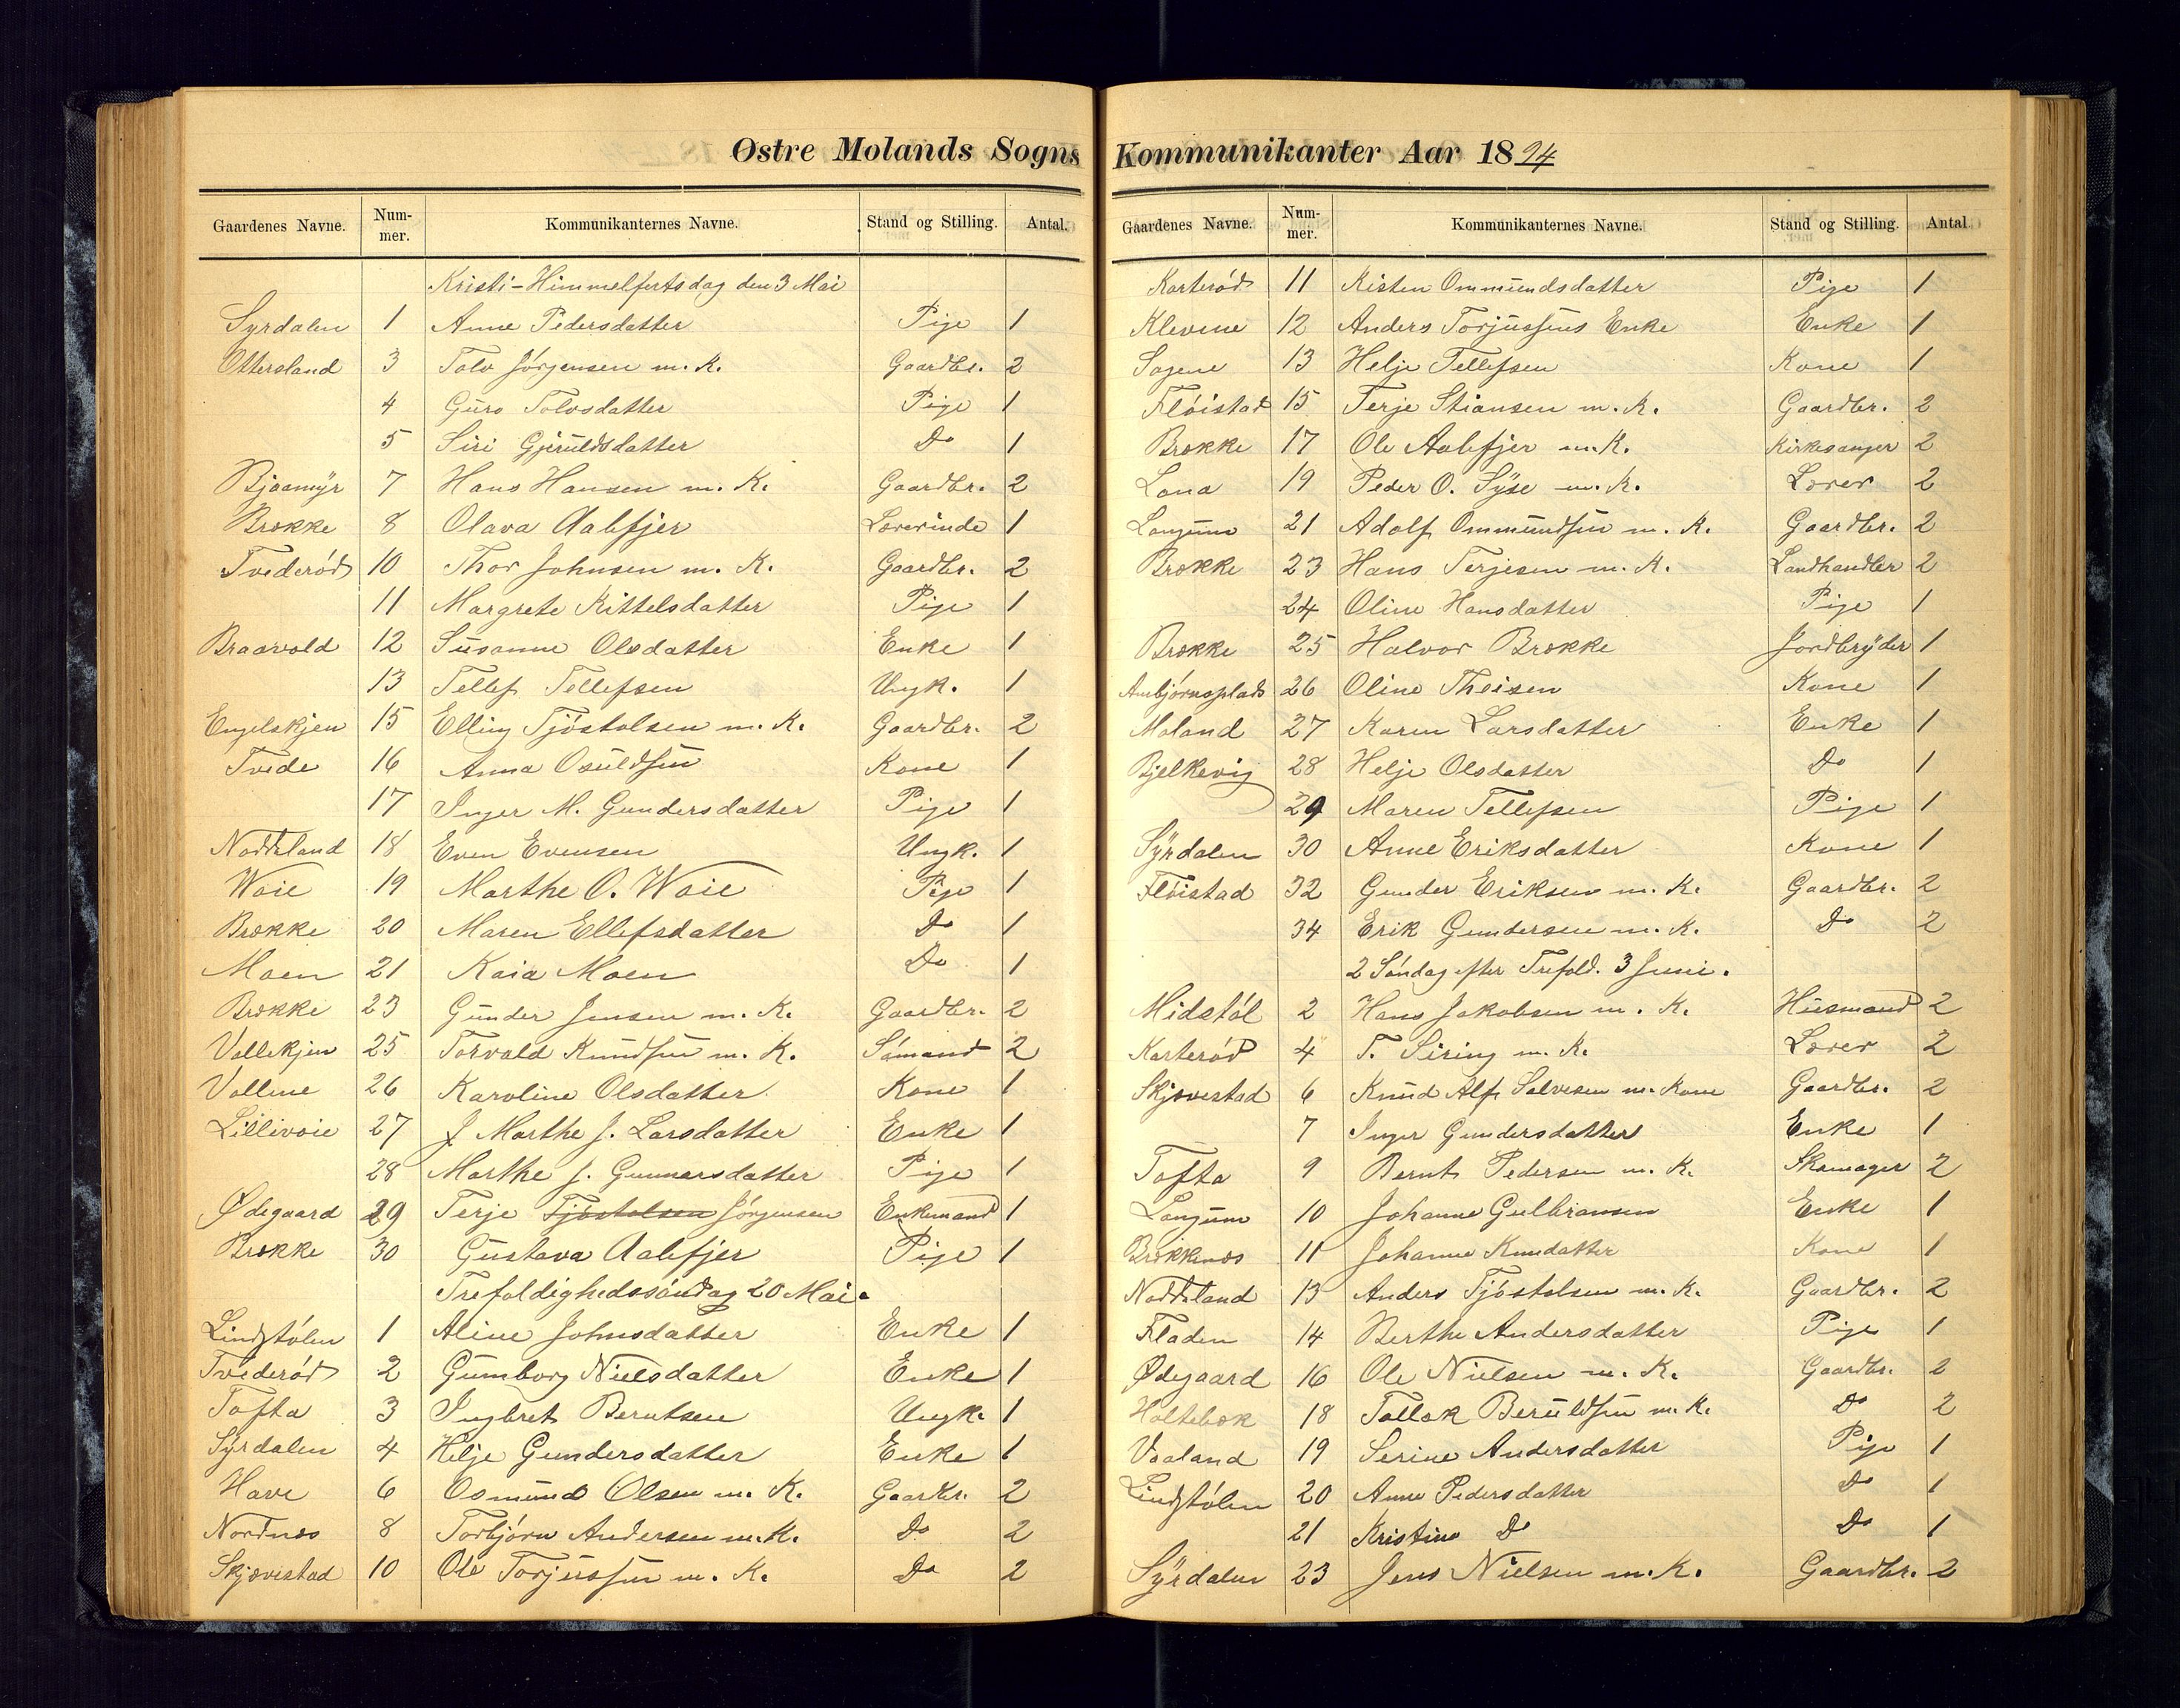 Østre Molands Sogns
Gaardenes Navne. Num- mer. Kommunikanternes Navne. Stand og Stilling. Antal.
Kristi-Himmelfertsdag den 3 Mai
Syrdalen 1 Anne Pedersdatter Pige 1
Ottersland 3 Tolv Jörgensen m. K. Gaardbr. 2
4 Guro Tolvsdatter Pige 1
5 Siri Gjeruldsdatter Do 1
Bjaamyr 7 Hans Hansen m. K. Gaardbr. 2
Brække 8 Olava Aalefjer Lærerinde 1
Tvederød 10 Thor Johnsen m. K. Gaardbr. 2
11 Margrete Kittelsdatter Pige 1
Braarvold 12 Susanne Olsdatter Enke 1
13 Tellef Tellefsen Ungk. 1
Engelskjen 15 Elling Tjöstolsen m. K. Gaardbr. 2
Tvede 16 Anna Osuldsen Kone 1
17 Inger M. Gundersdatter Pige 1
Noddeland 18 Even Evensen Ungk. 1
Woie 19 Marthe O. Woie Pige 1
Brække 20 Maren Ellefsdatter Do 1
Moen 21 Kaia Moen Do 1
Brække 23 Gunder Jensen m. K. Gaardbr. 2
Vallekjen 25 Torvald Knudsen m. K. Sömand 2
Vollene 26 Karoline Olsdatter Kone 1
Lillivoie 27 J Marthe J. Larsdatter Enke 1
28 Marthe J. Gunnarsdatter Pige 1
Ødegaard 29 Terje Tjöstolsen Jörgensen Enkemand 1
Brække 30 Gustava Aalefjer Pige 1
Trefoldighedssöndag 20 Mai.
Lindstölen 1 Aline Johnsdatter Enke 1
Tvederød 2 Gumborg Nielsdatter Enke 1
Tofta 3 Ingbret Berntsen Ungk. 1
Syrdalen 4 Helje Gundersdatter Enke 1
Have 6 Osmund Olsen m. K. Gaardbr. 2
Nordnæs 8 Torbjörn Andersen m. K. Do 2
Skjævestad 10 Ole Torjussen m. K. Do 2
Kommunikanter Aar 1894
Gaardenes Navne. Num- mer. Kommunikanternes Navne. Stand og Stilling. Antal.
Karterød 11 Kisten Ommundsdatter Pige 1
Klevene 12 Anders Torjussens Enke Enke 1
Sagene 13 Helje Tellefsen Kone 1
Flöistad 15 Terje Stiansen m. K. Gaardbr. 2
Brække 17 Ole Aalefjer m. K. Kirkesanger 2
Lona 19 Peder O. Syse m. K. Lærer 2
Langum 21 Adolf Ommundsen m. K. Gaardbr. 2
Brække 23 Hans Terjesen m. K. Landhandler 2
24 Oline Hansdatter Pige 1
Brække 25 Halvor Brække Jordbryder 1
Ambjörnsplads 26 Oline Theisen Kone 1
Moland 27 Karen Larsdatter Enke 1
Bjelkevig 28 Helje Olsdatter Do 1
29 Maren Tellefsen Pige 1
Syrdalen 30 Anne Eriksdatter Kone 1
Flöistad 32 Gunder Eriksen m. K. Gaardbr. 2
34 Erik Gundersen m. K. Do 2
2 Söndag efter Trefold. 3 Juni.
Midstöl 2 Hans Jakobsen m. K. Husmand 2
Karterød 4 T. Siring m. K. Lærer 2
Skjævestad 6 Knud Alf Salvesen m. Kone Gaardbr. 2
7 Inger Gundersdatter Enke 1
Tofta 9 Bernt Pedersen m. K. Skomager 2
Langum 10 Johanne Gulbransen Enke 1
Brækkenæs 11 Johanne Knudatter Kone 1
Noddeland 13 Anders Tjöstolsen m. K. Gaardbr. 2
Fladen 14 Berthe Andersdatter Pige 1
Ødegaard 16 Ole Nielsen m. K. Gaardbr. 2
Holtebæk 18 Tallak Beruldsen m. K. Do 2
Vaaland 19 Serine Andersdatter Pige 1
Lindstölen 20 Anne Pedersdatter Do 1
21 Kristine Do Do 1
Syrdalen 23 Jens Nielsen m. K. Gaardbr. 2